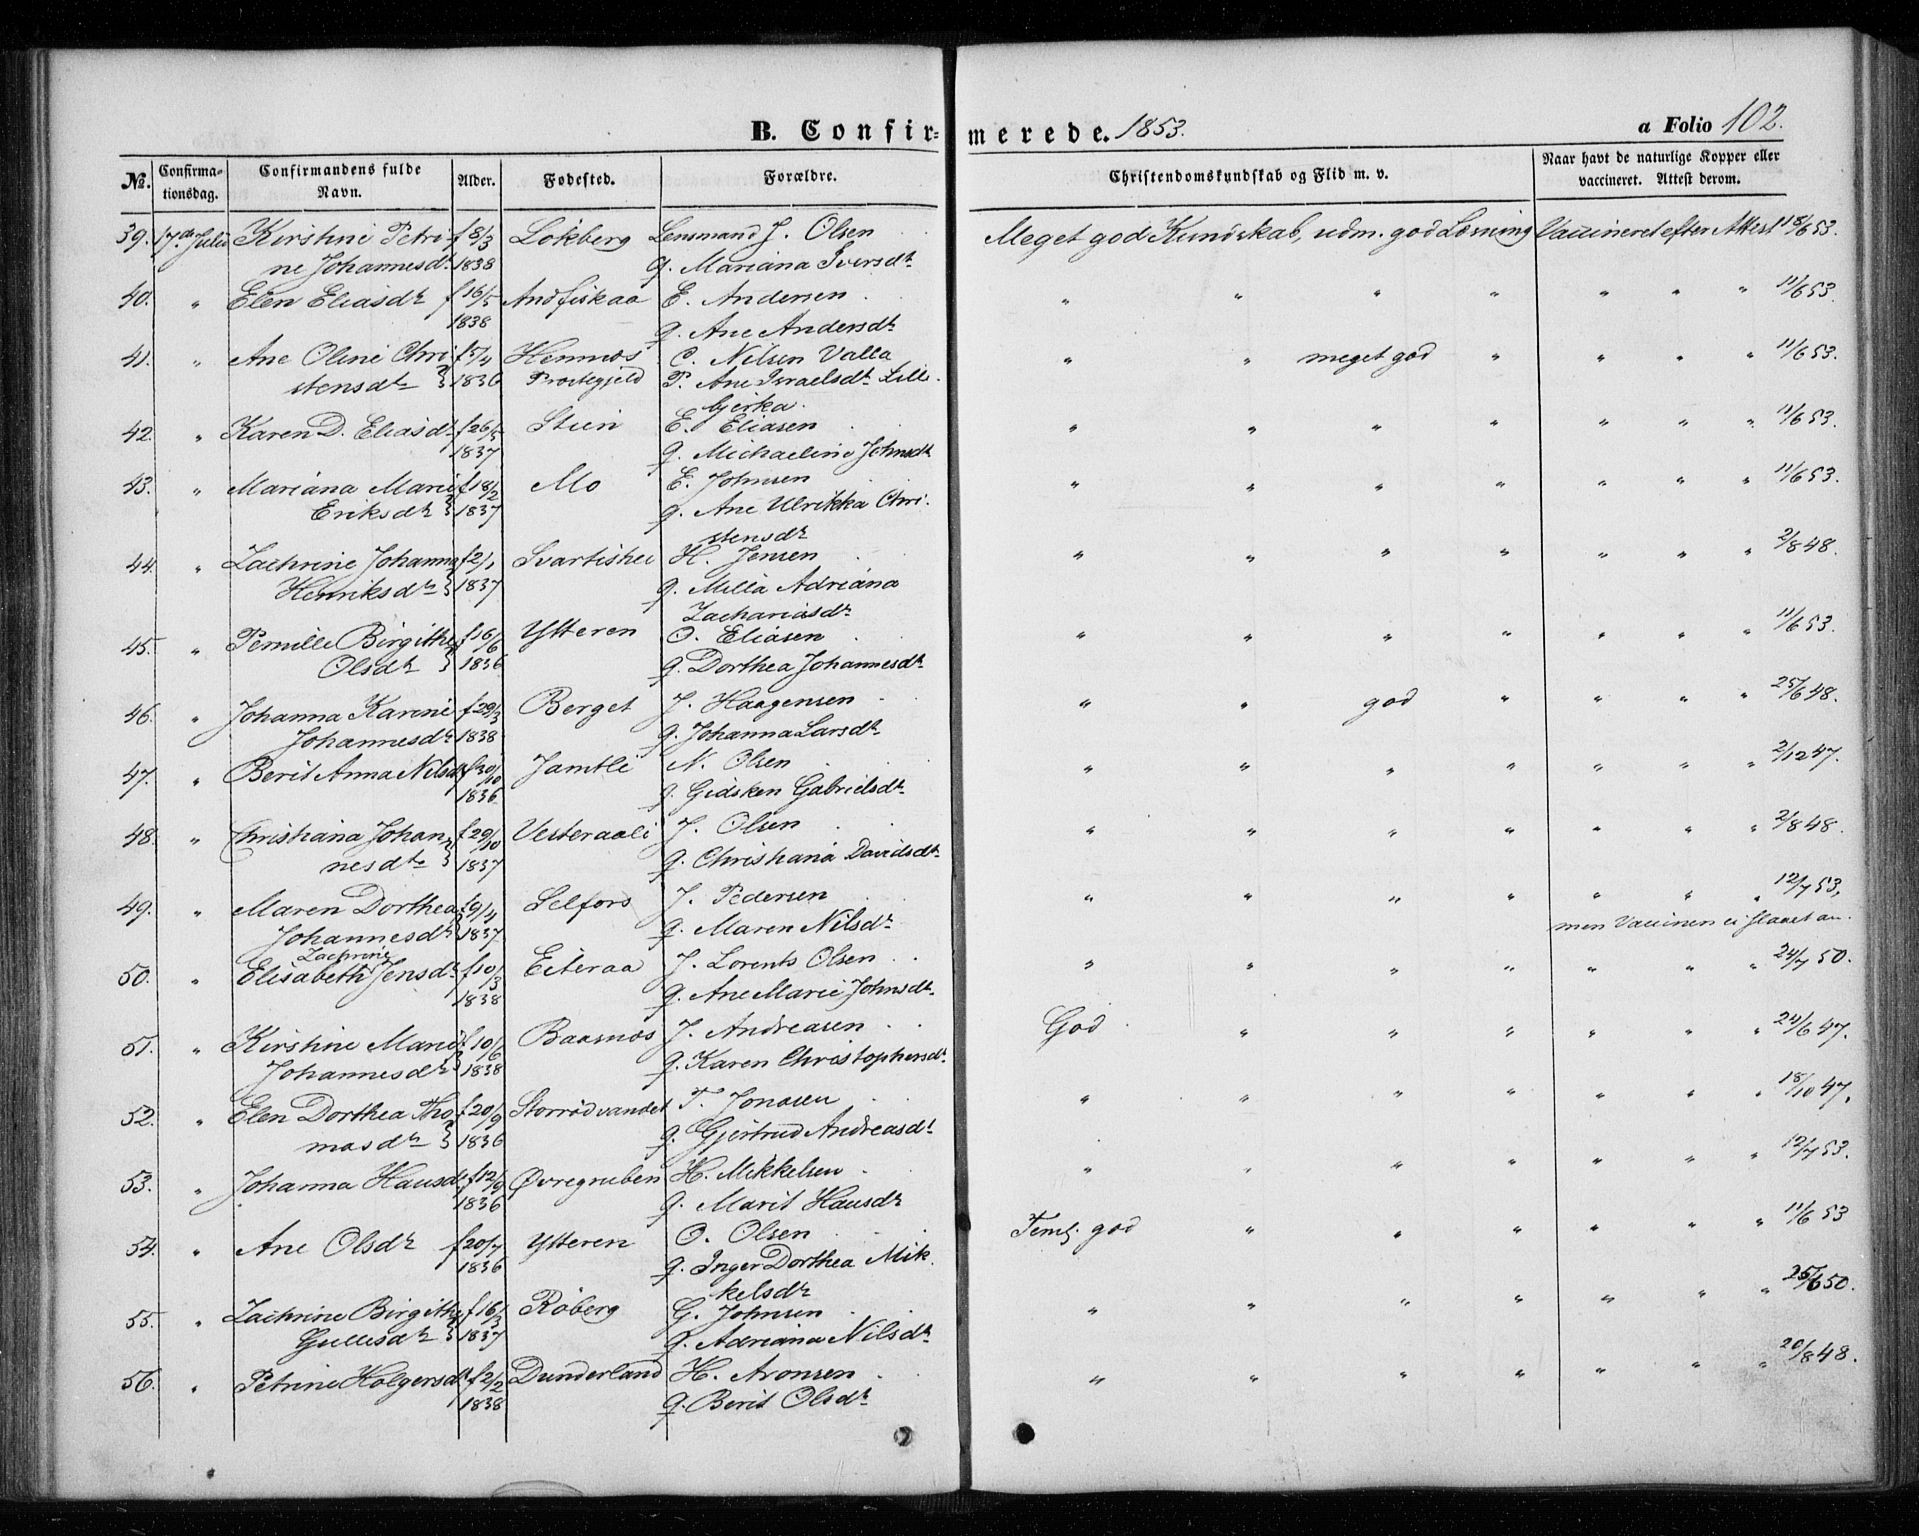 B. Confirmerede. 1853.
a Folio 102.
No. Confirmationsdag. Confirmandens fulde Navn. Alder. Fødested. Forældre. Christendomskundskab og Flid m. v. Naar havt de naturlige Kopper eller vaccineret. Attest derom.
39. 17de Julii Kirstine Petri f 8/3 Løkberg Lensmand J. Olsen Meget god Kundskab, udm. god Læsning Vaccineret efter Attest 18/6 53.
ne Johannesdr 1838 g. Mariana Iversdr
40. " Elen Eliasdr f 16/5 Andfiskaa E. Andersen " " " " " " " 11/6 53.
1838 g. Ane Andersdr
41. " Ane Oline Chri f 5/4 Hemnæs C. Nilsen Valla " " meget god " " " " 11/6 53.
stensdr 1836 Prostegjeld P. Ane Israelsdr Lille
bjerka.
42. " Karen D. Eliasdr f 26/5 Stien E. Eliasen " " " " " " " 11/6 53.
1837 g. Michaeline Johnsdr
43. " Mariana Marie f 18/2 Mo E. Johnsen " " " " " " " 11/6 53.
Eriksdr 1837 g. Ane Ulrikka Chri
stensdr
44. " Zachrine Johanna f 2/1 Svartishei H. Jensen " " " " " " " 2/8 48.
Henriksdr 1837 g. Milla Adriana
Zachariasdr
45. " Pernille Birgithe f 16/6 Ytteren O. Eliasen " " " " " " " 11/6 53.
Olsdr 1836 g. Dorthea Johannesdr
46. " Johanna Karine f 29/3 Berget J. Haagensen " " god " " " " 25/6 48.
Johannesdr 1838 g. Johanna Larsdr
47. " Berit Anna Nilsdr f 30/10 Jamtli N. Olsen " " " " " " " 2/12 47.
1836 g. Gidsken Gabrielsdr
48. " Christiana Johan f 29/10 Vesteraali J. Olsen " " " " " " " 2/8 48.
nesdr 1837 g. Christiana Davidsdr
49. " Maren Dorthea f 9/4 Selfors J. Pedersen " " " " " " " 12/7 53,
Johannesdr 1837 g. Maren Nilsdr men Vaccinen ei slaaet an.
Zachrine
50. " Elisabeth Jensdr f 10/3 Eiteraa J. Lorents Olsen " " " " " " " 24/7 50.
1838 g. Ane Marie Johnsdr
51. " Kirstine Marie f 10/6 Baasmos J. Andreasen God " " " " " " 24/6 47.
Johannesdr 1838 g. Karen Christophersdr
52. " Elen Dorthea Tho f 20/9 Storrødvandet T. Jonasen " " " " " " " 18/10 47.
masdr 1836 g. Gjertrud Andreasdr
53. " Johanna Hansdr f 12/9 Øvregruben H. Mikkelsen " " " " " " " 12/7 53.
1836 g. Marit Hansdr
54. " Ane Olsdr f 20/7 Ytteren O. Olsen Teml. god " " " " " " 11/6 53
1836 g. Inger Dorthea Mik
kelsdr
55. " Zachrine Birgithe f 16/3 Røberg G. Johnsen " " " " " " " 25/6 50.
Gullesdr 1837 g. Adriana Nilsdr
56. " Petrine Holgersdr f 2/2 Dunderland H. Aronsen " " " " " " " 20/8 48.
1838 g. Berit Olsdr